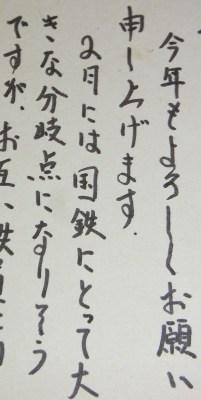 今年もよろしくお願い
申し上げます.
2月には国鉄にとって大
きな分岐点になりそう
ですが、お互い鉄